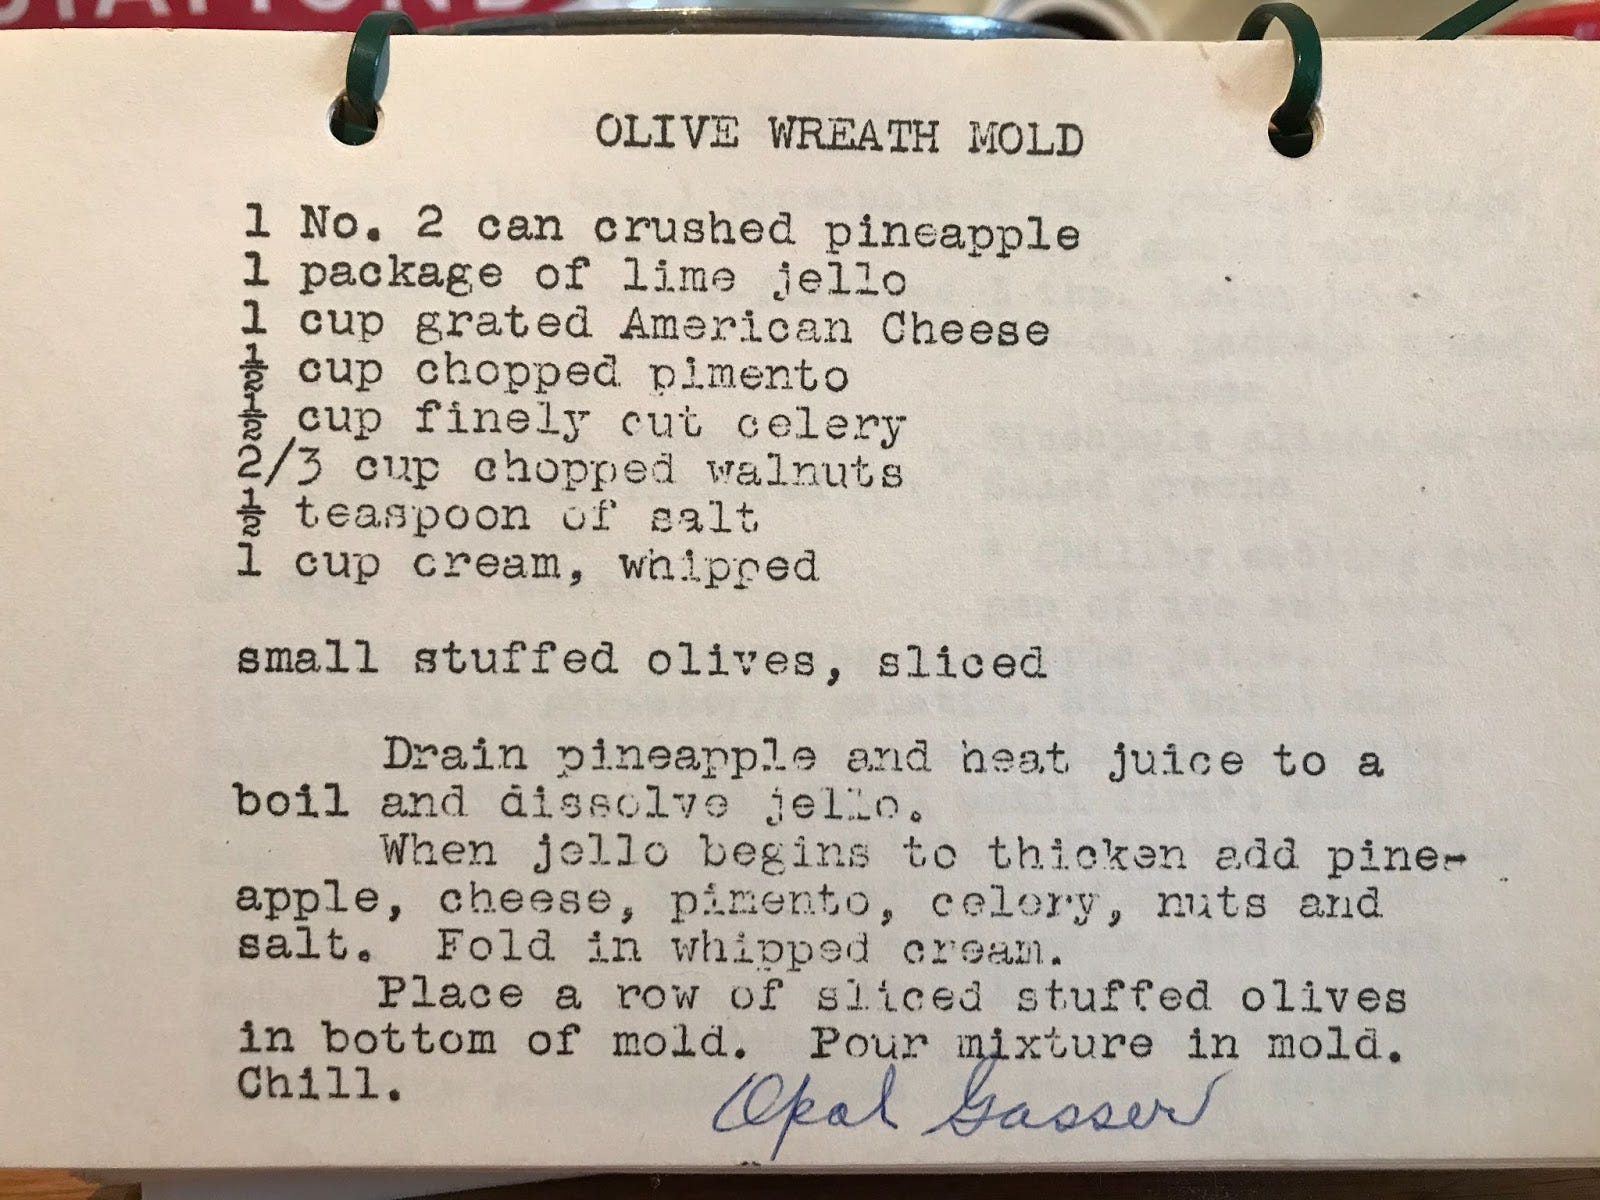 OLIVE WREATH MOLD
1 No. 2 can crushed pineapple
1 package of lime jello
1 cup grated American Cheese
½ cup chopped pimento
½ cup finely cut celery
2/3 cup chopped walnuts
½ teaspoon of salt
1 cup cream, whipped
small stuffed olives, sliced
Drain pineapple and heat juice to a
boil and dissolve jello.
When jello begins to thicken add pine-
apple, cheese, pimento, celery, nuts and
salt. Fold in whipped cream.
Place a row of sliced stuffed olives
in bottom of mold. Pour mixture in mold.
Chill.
Opal Gasser